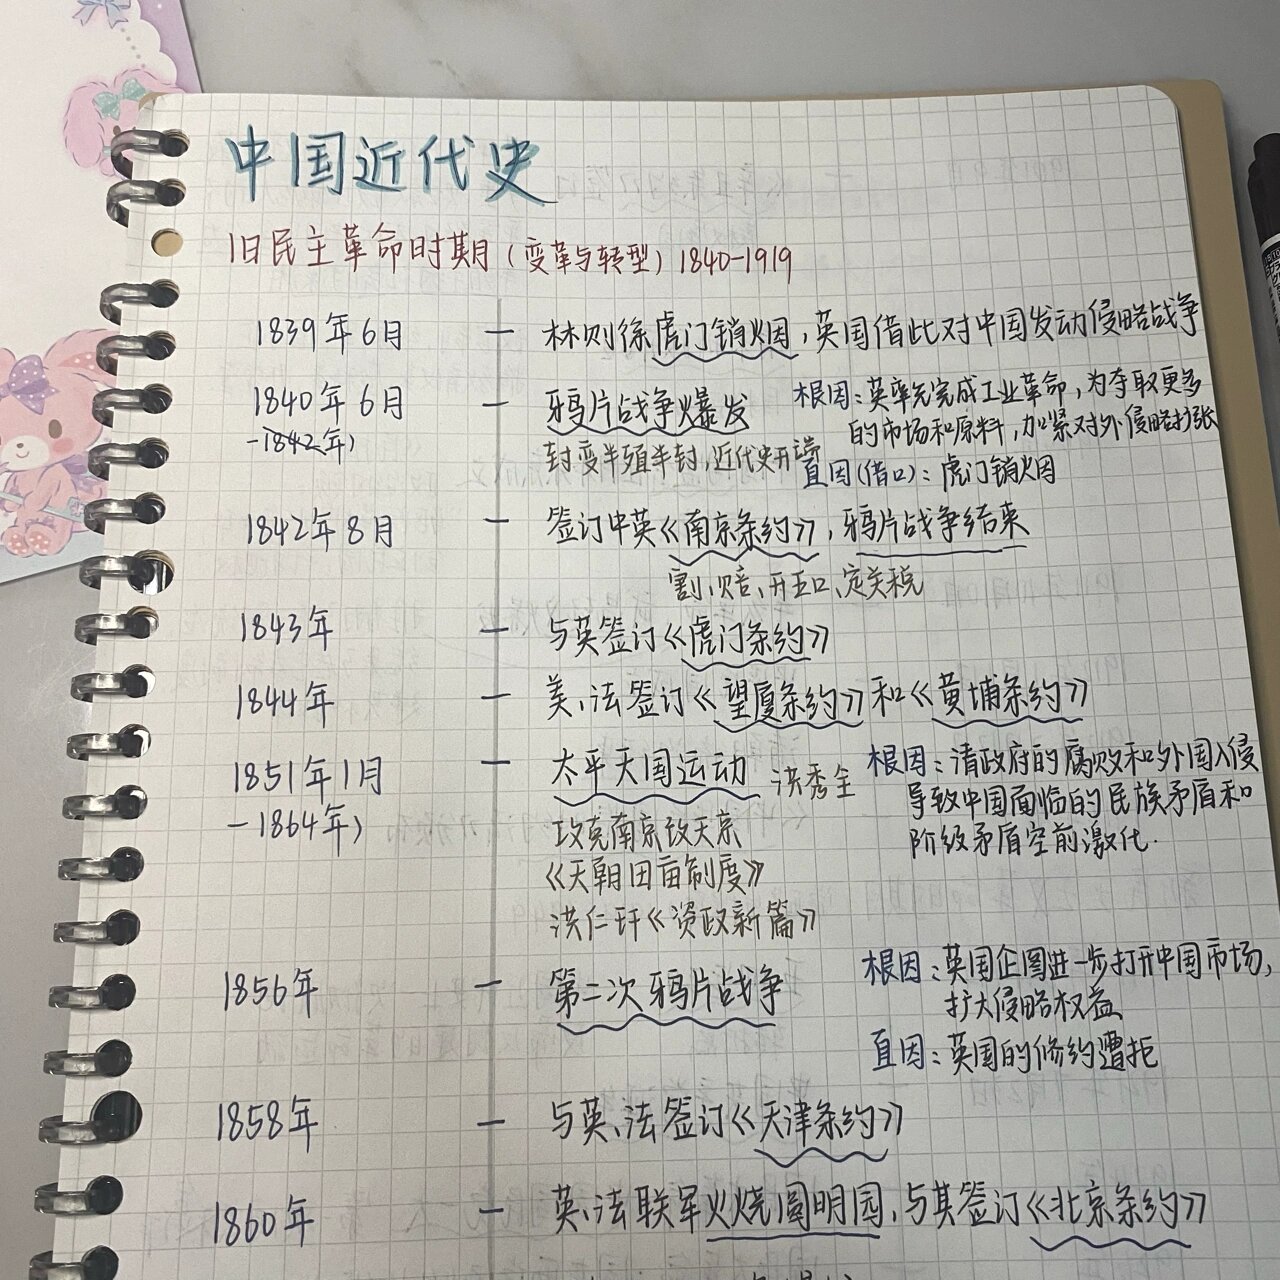 中国近代史
旧民主革命时期(变革与转型) 1840-1919
1839年6月 — 林则徐虎门销烟,英国借此对中国发动侵略战争
1840年6月 — 鸦片战争爆发
-1842年)
封变半殖半封,近代史开端
根因:英率先完成工业革命,为夺取更多
的市场和原料,加紧对外侵略扩张
直因(借口):虎门销烟
1842年8月 — 签订中英《南京条约》,鸦片战争结束
割、赔、开五口、定关税
1843年 — 与英签订《虎门条约》
1844年 — 美、法签订《望厦条约》和《黄埔条约》
1851年1月 — 太平天国运动 洪秀全
-1864年)
攻克南京改天京
《天朝田亩制度》
洪仁玕《资政新篇》
根因:清政府的腐败和外国入侵
导致中国面临的民族矛盾和
阶级矛盾空前激化.
1856年 — 第二次鸦片战争
根因:英国企图进一步打开中国市场,
扩大侵略权益
直因:英国的修约遭拒
1858年 — 与英、法签订《天津条约》
1860年 — 英、法联军火烧圆明园,与其签订《北京条约》